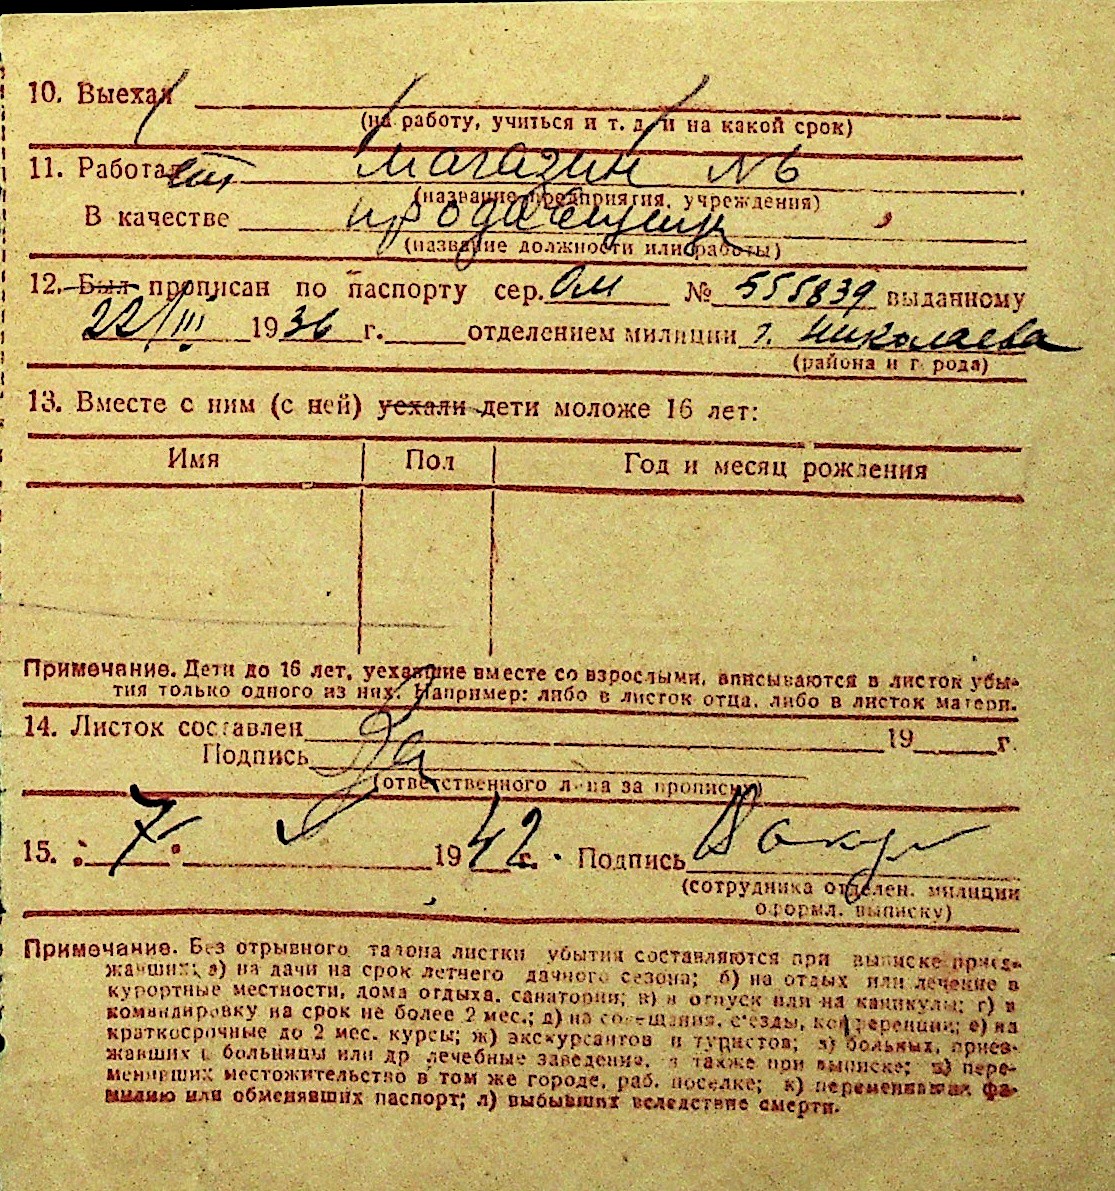 10. Выехал
(на работу, учиться и т. д. и на какой срок)
11. Работает магазин №6
(название предприятия, учреждения)
В качестве продавщицы
(название должности или работы)
12. Был прописан по паспорту сер. ОМ № 555839 выданному
22/III 1936 г. отделением милиции г. Николаева
(района и города)
13. Вместе с ним (с ней) уехали дети моложе 16 лет:
Имя Пол Год и месяц рождения
Примечание. Дети до 16 лет, уехавшие вместе со взрослыми, вписываются в листок убы-
тия только одного из них. Например: либо в листок отца, либо в листок матери.
14. Листок составлен 19 г.
Подпись
(ответственного лица за прописку)
15. " 7 " 1942 г. Подпись
(сотрудника отделен. милиции
оформл. выписку)
Примечание. Без отрывного талона листки убытия составляются при выписке приез-
жавших: а) на дачи на срок летнего дачного сезона; б) на отдых или лечение в
курортные местности, дома отдыха, санатории; в) в отпуск или на каникулы; г) в
командировку на срок не более 2 мес.; д) на совещания, съезды, конференции; е) на
краткосрочные до 2 мес. курсы; ж) экскурсантов и туристов; з) больных, приез-
жавших в больницы или др лечебные заведения, а также при выписке; и) пере-
менивших местожительство в том же городе, раб. поселке; к) переменивших фа-
милию или обменявших паспорт; л) выбывших вследствие смерти.